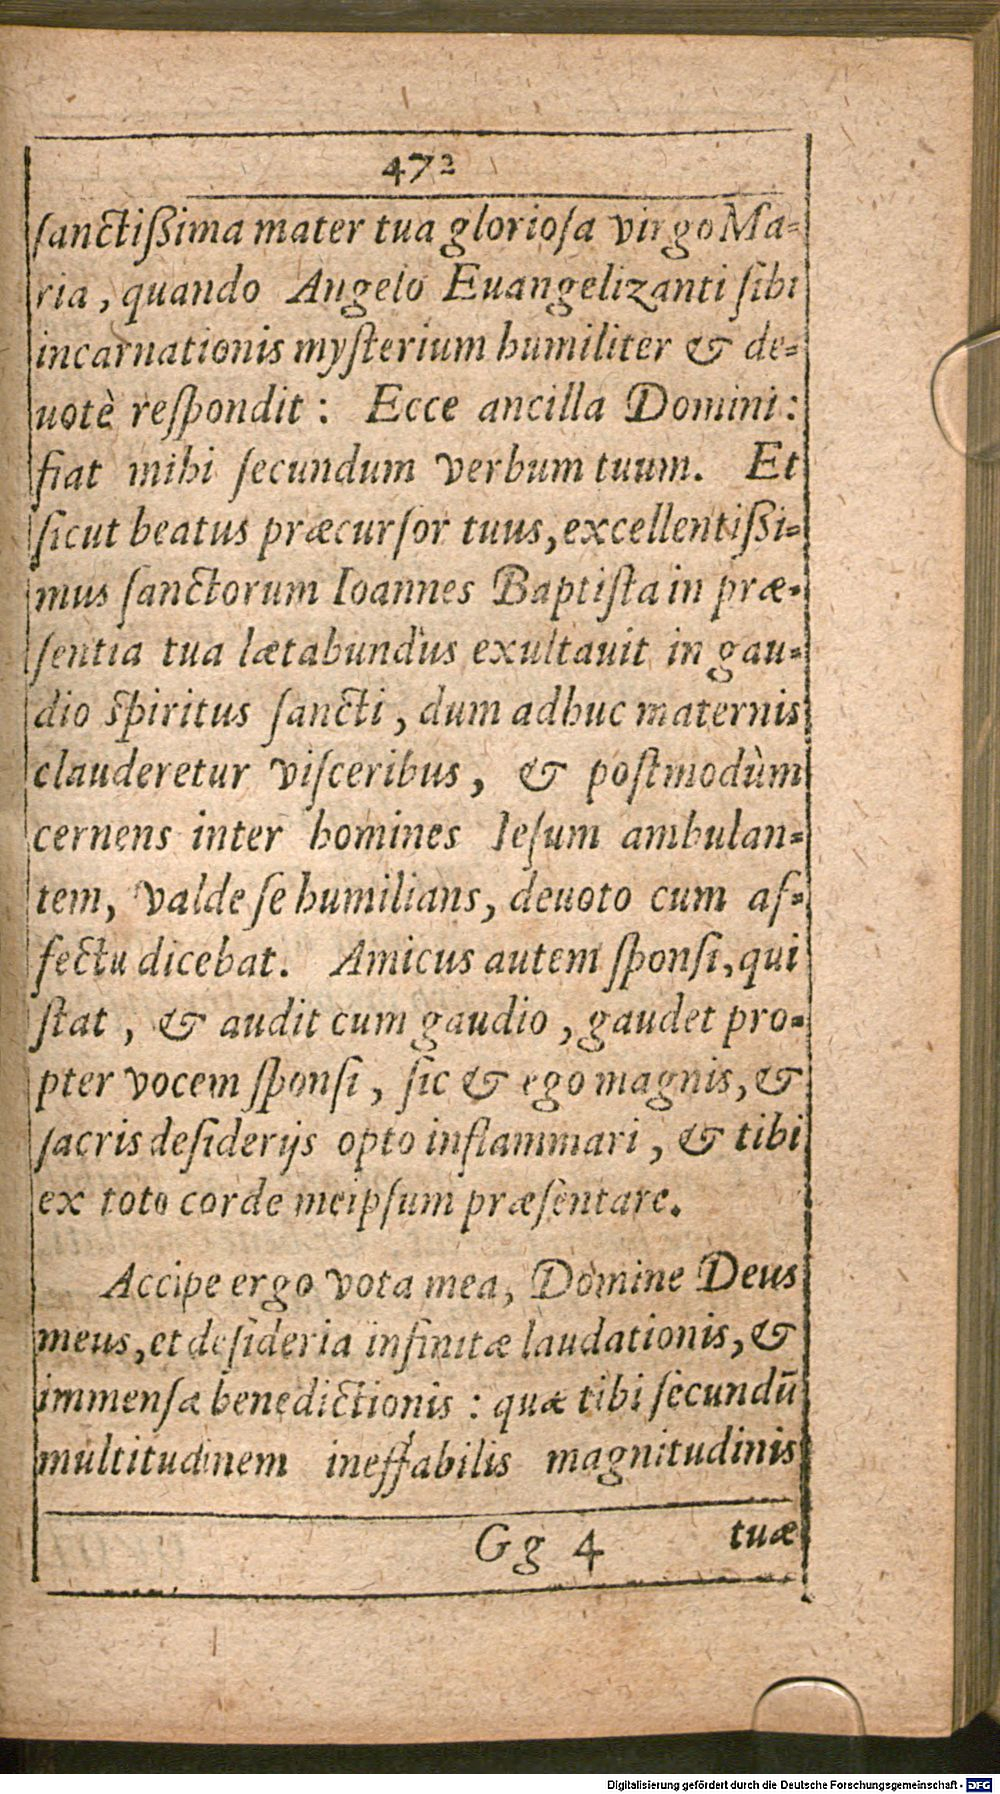 472
ſanctiſſima mater tua glorioſa virgo Ma-
ria, quando Angelo Euangelizanti ſibi
incarnationis myſterium humiliter & de-
uotè reſpondit: Ecce ancilla Domini:
fiat mihi ſecundum verbum tuum. Et
ſicut beatus præcurſor tuus, excellentiſſi-
mus ſanctorum Ioannes Baptiſta in præ-
ſentia tua lætabundus exultauit in gau-
dio ſpiritus ſancti, dum adhuc maternis
clauderetur viſceribus, & poſtmodùm
cernens inter homines Ieſum ambulan-
tem, valde ſe humilians, deuoto cum af-
fectu dicebat. Amicus autem ſponſi, qui
ſtat, & audit cum gaudio, gaudet pro-
pter vocem ſponſi, ſic & ego magnis, &
ſacris deſiderijs opto inflammari, & tibi
ex toto corde meipſum præſentare.
Accipe ergo vota mea, Domine Deus
meus, et deſideria infinitæ laudationis, &
immenſæ benedictionis: quæ tibi ſecundū
multitudinem ineffabilis magnitudinis
Gg 4 tuæ
Digitalisierung gefördert durch die Deutsche Forschungsgemeinschaft - DFG